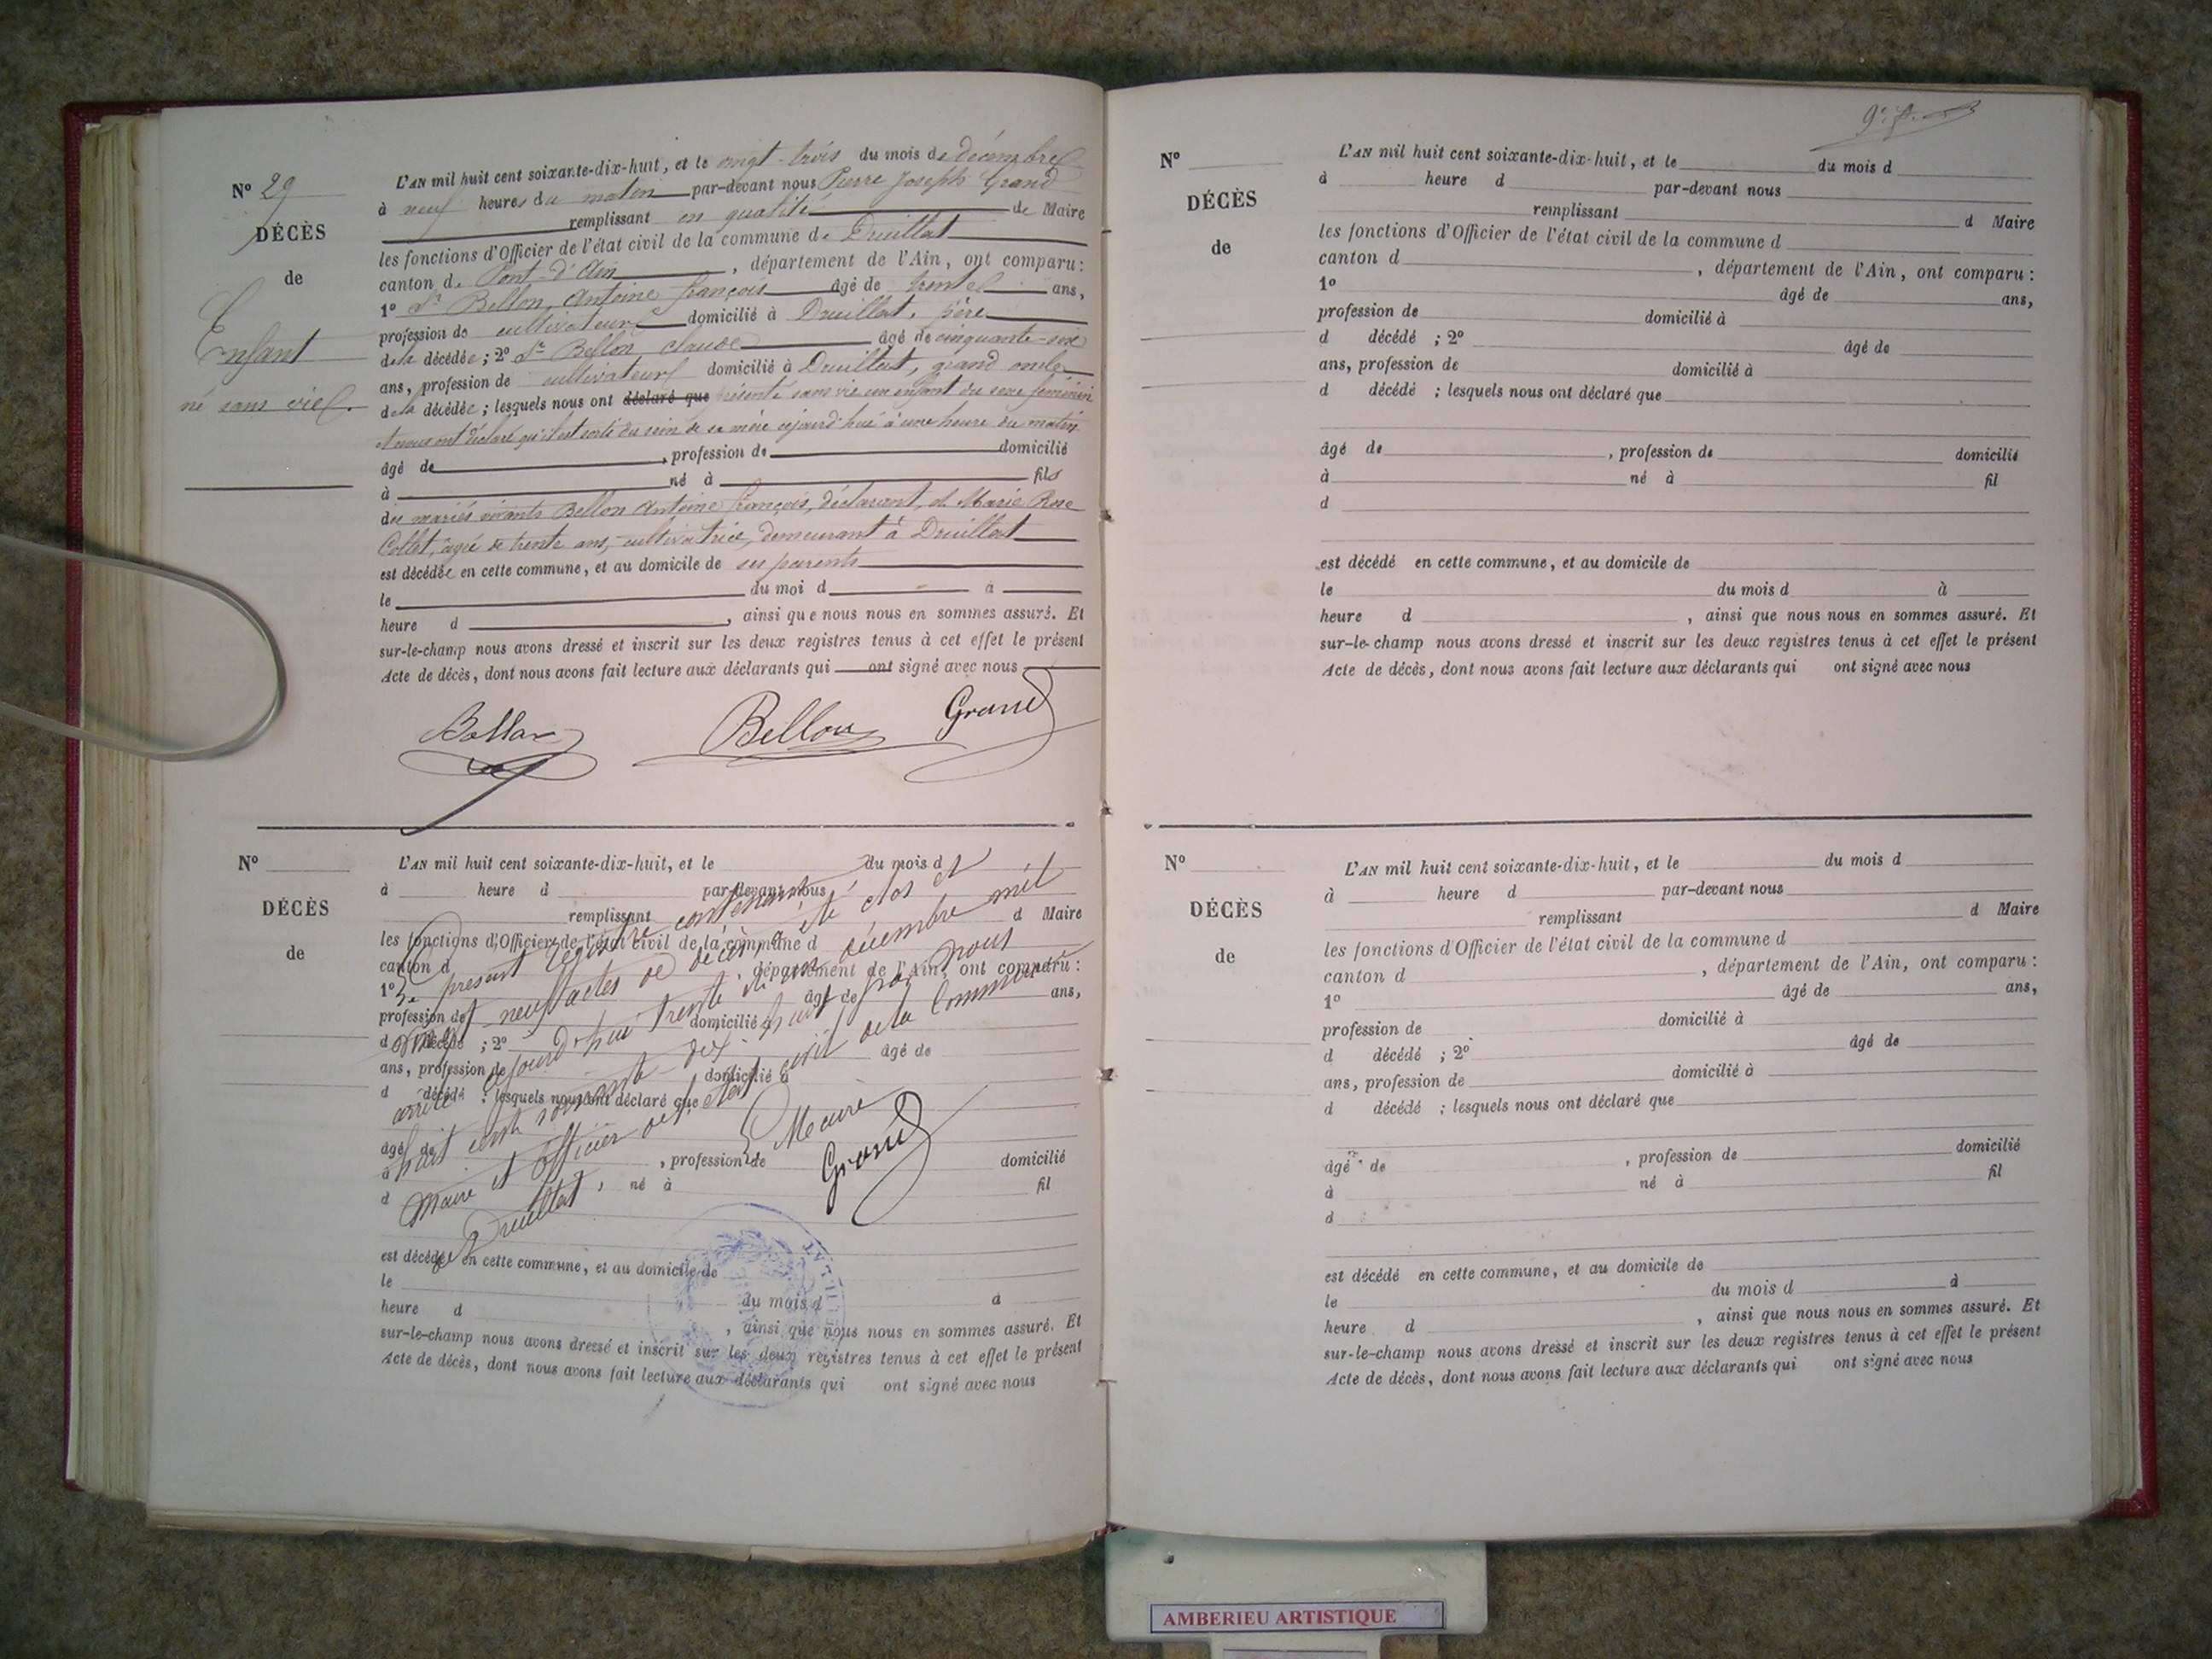 N° 29
DÉCÈS
de
Enfant
né sans vie.
L'AN mil huit cent soixante-dix-huit, et le vingt-trois du mois de décembre
à neuf heures du matin par-devant nous Pierre Joseph Grand
remplissant en qualité de Maire
les fonctions d'Officier de l'état civil de la commune de Druillat
canton de Pont-d'Ain, département de l'Ain, ont comparu:
1° Sr Bellon, Antoine françois âgé de trente ans,
profession de cultivateur domicilié à Druillat, père
de la décédée; 2° Sr Bellon claude âgé de cinquante-six
ans, profession de cultivateur domicilié à Druillat, grand oncle
de la décédée; lesquels nous ont déclaré que présenté sans vie un enfant du sexe féminin
et nous ont déclaré qu'il est sorti du sein de sa mère cejourd'hui à une heure du matin
âgé de , profession de domicilié
à né à fils
des mariés vivants Bellon Antoine françois, déclarant, et Marie Rose
Collet, âgée de trente ans, cultivatrice, demeurant à Druillat
est décédée en cette commune, et au domicile de ses parents
le du moi d à
heure d , ainsi que nous nous en sommes assuré. Et
sur-le-champ nous avons dressé et inscrit sur les deux registres tenus à cet effet le présent
Acte de décès, dont nous avons fait lecture aux déclarants qui ont signé avec nous
Bellon Bellon Grand
N°
DÉCÈS
de
L'AN mil huit cent soixante-dix-huit, et le du mois d
à heure d par-devant nous
remplissant d Maire
les fonctions d'Officier de l'état civil de la commune d
canton d , département de l'Ain, ont comparu:
1° âgé de ans,
profession de domicilié à
d décédé ; 2° âgé de
ans, profession de domicilié à
d décédé ; lesquels nous ont déclaré que
âgé de , profession de domicilié
à né à fil
d
est décédé en cette commune, et au domicile de
le du mois d à
heure d , ainsi que nous nous en sommes assuré. Et
sur-le-champ nous avons dressé et inscrit sur les deux registres tenus à cet effet le présent
Acte de décès, dont nous avons fait lecture aux déclarants qui ont signé avec nous
Le présent registre contenant
vingt-neuf actes de décès, a été clos et
arrêté cejourd'hui trente et un décembre mil
huit cent soixante-dix-huit par nous
Maire et Officier de l'état civil de la Commune
de Druillat,
Le Maire
Grand
N°
DÉCÈS
de
L'AN mil huit cent soixante-dix-huit, et le du mois d
à heure d par-devant nous
remplissant d Maire
les fonctions d'Officier de l'état civil de la commune d
canton d , département de l'Ain, ont comparu:
1° âgé de ans,
profession de domicilié à
d décédé ; 2° âgé de
ans, profession de domicilié à
d décédé ; lesquels nous ont déclaré que
âgé de , profession de domicilié
à né à fil
d
est décédé en cette commune, et au domicile de
le du mois d à
heure d , ainsi que nous nous en sommes assuré. Et
sur-le-champ nous avons dressé et inscrit sur les deux registres tenus à cet effet le présent
Acte de décès, dont nous avons fait lecture aux déclarants qui ont signé avec nous
N°
DÉCÈS
de
L'AN mil huit cent soixante-dix-huit, et le du mois d
à heure d par-devant nous
remplissant d Maire
les fonctions d'Officier de l'état civil de la commune d
canton d , département de l'Ain, ont comparu:
1° âgé de ans,
profession de domicilié à
d décédé ; 2° âgé de
ans, profession de domicilié à
d décédé ; lesquels nous ont déclaré que
âgé de , profession de domicilié
à né à fil
d
est décédé en cette commune, et au domicile de
le du mois d à
heure d , ainsi que nous nous en sommes assuré. Et
sur-le-champ nous avons dressé et inscrit sur les deux registres tenus à cet effet le présent
Acte de décès, dont nous avons fait lecture aux déclarants qui ont signé avec nous
AMBERIEU ARTISTIQUE